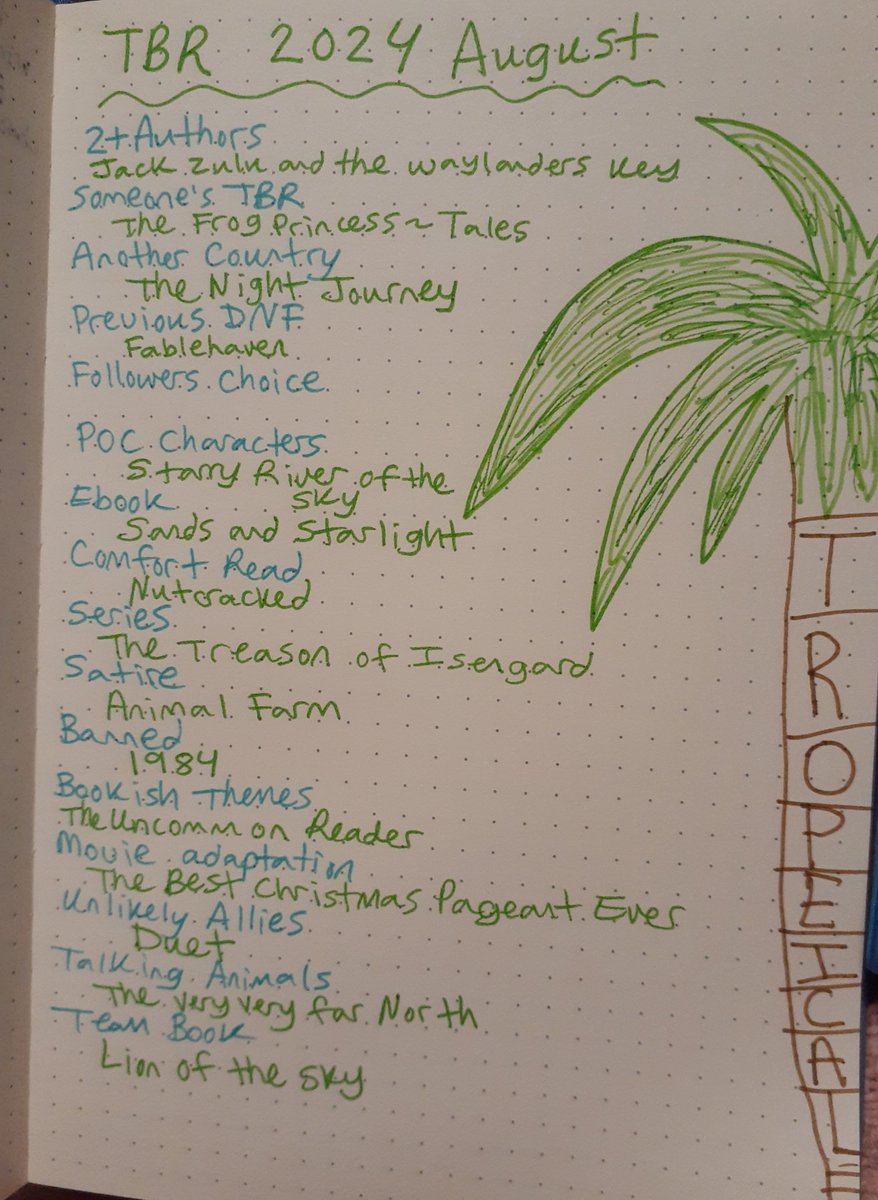 TBR 2024 August
2+Authors
Jack Zulu and the waylanders key
Someone's TBR
The Frog Princess ~ Tales
Another Country
The Night Journey
Previous DNF
Fablehaven
Followers Choice
POC Characters
Starry River of the
Sky
Ebook
Sands and Starlight
Comfort Read
Nutcracked
Series
The Treason of Isengard
Satire
Animal Farm
Banned
1984
Bookish Themes
The Uncommon Reader
Movie adaptation
The Best Christmas Pageant Ever
Unlikely Allies
Duet
Talking Animals
The very very far North
Team Book
Lion of the sky
T
R
O
P
E
I
C
A
L
E